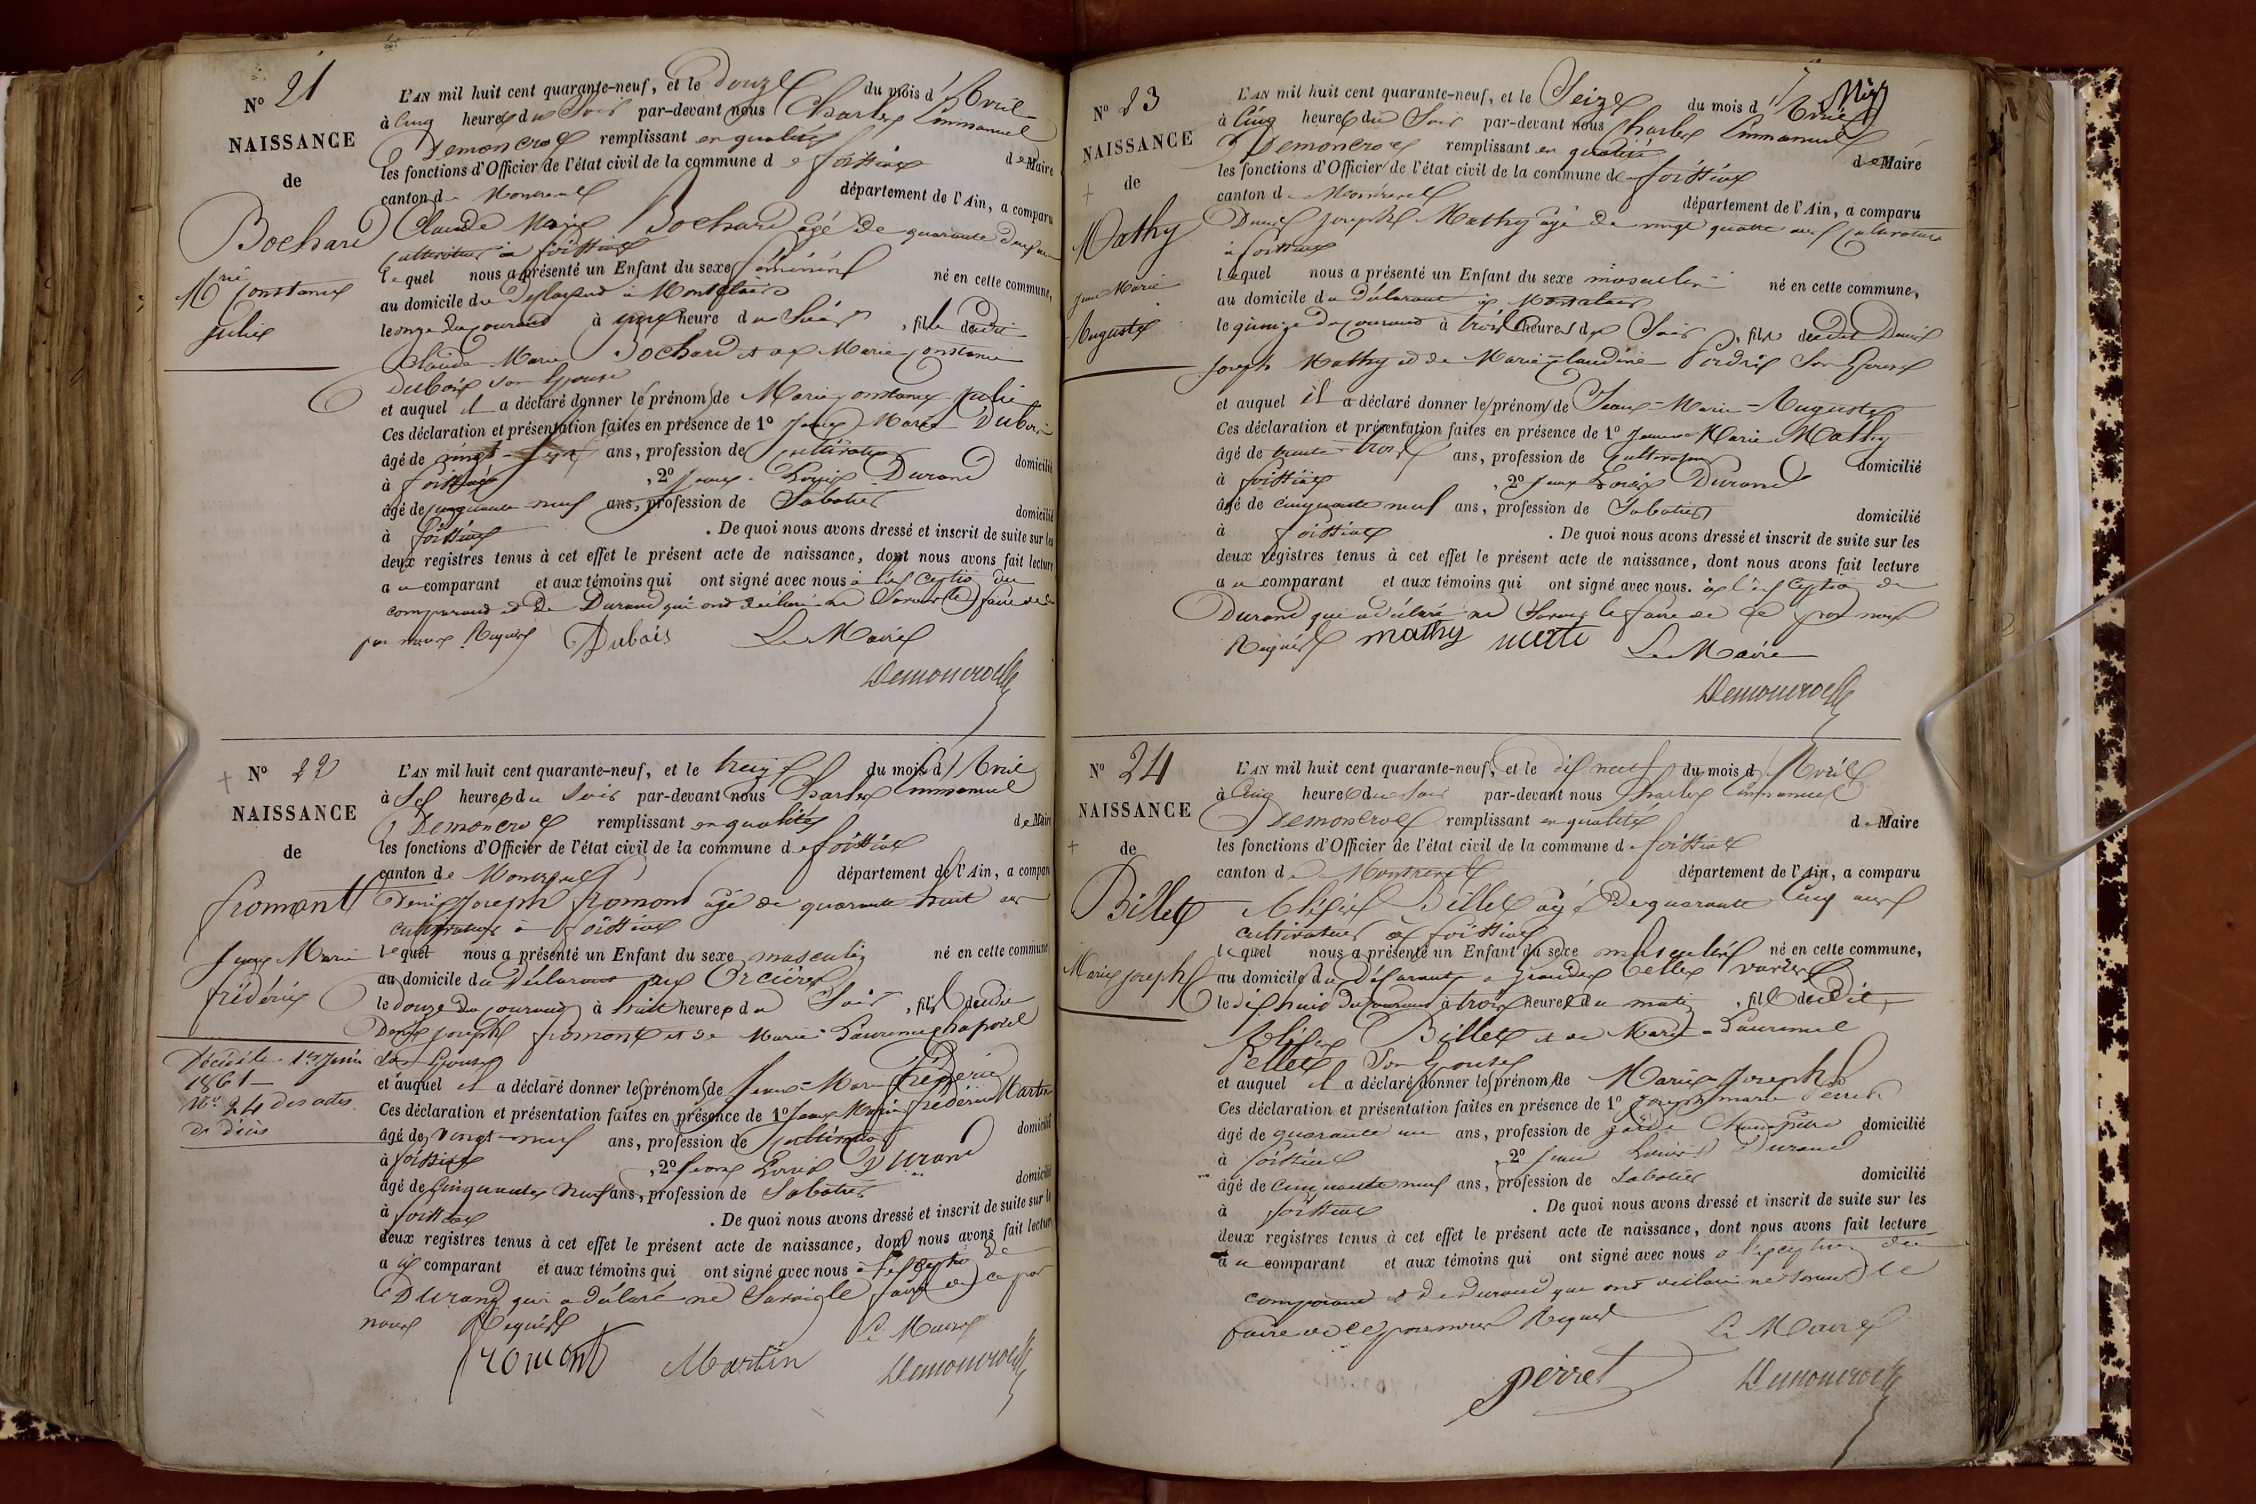 N° 21
NAISSANCE
de
Bochard
Mrie Constance
Julie
L'AN mil huit cent quarante-neuf, et le Douze du mois d'Avril
à Cinq heures du Soir par-devant nous Charles Emmanuel
Demoncroc remplissant en qualité de Maire
les fonctions d'Officier de l'état civil de la commune de foissiat
canton de Montrevel département de l'Ain, a comparu
Claude Marie Bochard âgé de quarante deux ans
cultivateur à foissiat
lequel nous a présenté un Enfant du sexe féminin né en cette commune,
au domicile du Déclarant à Montclair
le onze du courant à une heure du Soir, fille dudit
Claude Marie Bochard et de Marie Constance
Dubois son Epouse
et auquel il a déclaré donner les prénoms de Marie Constance Julie
Ces déclaration et présentation faites en présence de 1° Jean Marie Dubois
âgé de vingt-sept ans, profession de cultivateur domicilié
à foissiat, 2° Jean-Louis Durand
âgé de cinquante neuf ans, profession de Sabotier domicilié
à foissiat. De quoi nous avons dressé et inscrit de suite sur les
deux registres tenus à cet effet le présent acte de naissance, dont nous avons fait lecture
au comparant et aux témoins qui ont signé avec nous à l'exception du
comparant et de Durand qui ont déclaré ne savoir le faire de ce
par nous Requis Dubois Le Maire
N° 22
NAISSANCE
de
fromont
Jean Marie
frédéric
Décédé le 1er Juin
1861
N° 24 des actes
de décès
L'AN mil huit cent quarante-neuf, et le treize du mois d'Avril
à Six heures du Soir par-devant nous Charles Emmanuel
Demoncroc remplissant en qualité de Maire
les fonctions d'Officier de l'état civil de la commune de foissiat
canton de Montrevel département de l'Ain, a comparu
Denis Joseph fromont âgé de quarante huit ans
cultivateur à foissiat
lequel nous a présenté un Enfant du sexe masculin né en cette commune
au domicile du Déclarant aux Orcières
le douze du courant à huit heures du Soir, fils dudit
Denis Joseph fromont et de Marie Laurence Chapotel
Son Epouse
et auquel il a déclaré donner les prénoms de Jean-Marie frédéric
Ces déclaration et présentation faites en présence de 1° Jean Marie frédéric Martin
âgé de vingt-neuf ans, profession de cultivateur domicilié
à foissiat, 2° Jean Louis Durand
âgé de Cinquante Neuf ans, profession de Sabotier domicilié
à foissiat. De quoi nous avons dressé et inscrit de suite sur les
deux registres tenus à cet effet le présent acte de naissance, dont nous avons fait lecture
au comparant et aux témoins qui ont signé avec nous à l'exception de
Durand qui a déclaré ne Savoir le faire de ce par
nous Requis Le Maire
fromont Martin
N° 23
NAISSANCE
de
Mathy
Jean Marie
Auguste
L'AN mil huit cent quarante-neuf, et le Seize du mois d'Avril
à Cinq heures du Soir par-devant nous Charles Emmanuel
Demoncroc remplissant en qualité de Maire
les fonctions d'Officier de l'état civil de la commune de foissiat
canton de Montrevel département de l'Ain, a comparu
Denis Joseph Mathy âgé de vingt quatre ans Cultivateur
à foissiat
lequel nous a présenté un Enfant du sexe masculin né en cette commune,
au domicile du déclarant à Montclair
le quinze du courant à trois heures du Soir, fils dudit Denis
Joseph Mathy et de Marie-Claudine Perdrix Son Epouse
et auquel il a déclaré donner les prénoms de Jean-Marie-Auguste
Ces déclaration et présentation faites en présence de 1° Jean-Marie Mathy
âgé de trente-trois ans, profession de Cultivateur domicilié
à foissiat, 2° Jean Louis Durand
âgé de cinquante neuf ans, profession de Sabotier domicilié
à foissiat. De quoi nous avons dressé et inscrit de suite sur les
deux registres tenus à cet effet le présent acte de naissance, dont nous avons fait lecture
au comparant et aux témoins qui ont signé avec nous. à l'exception de
Durand qui a déclaré ne Savoir le faire de ce par nous
Requis mathy Le Maire
N° 24
NAISSANCE
de
Billet
Marie Joseph
L'AN mil huit cent quarante-neuf, et le dix neuf du mois d'Avril
à Cinq heures du Soir par-devant nous Charles Emmanuel
Demoncroc remplissant en qualité de Maire
les fonctions d'Officier de l'état civil de la commune de foissiat
canton de Montrevel département de l'Ain, a comparu
Billet âgé de quarante Cinq ans
cultivateur à foissiat
lequel nous a présenté un Enfant du sexe masculin né en cette commune,
au domicile du Déclarant à
le dix huit du courant à trois heures du matin, fils dudit
Billet et de Marie-Laurence
Pellet Son Epouse
et auquel il a déclaré donner les prénoms de Marie Joseph
Ces déclaration et présentation faites en présence de 1° Joseph marie Perret
âgé de quarante un ans, profession de garde Champêtre domicilié
à foissiat, 2° Jean Louis Durand
âgé de cinquante neuf ans, profession de Sabotier domicilié
à foissiat. De quoi nous avons dressé et inscrit de suite sur les
deux registres tenus à cet effet le présent acte de naissance, dont nous avons fait lecture
au comparant et aux témoins qui ont signé avec nous à l'exception du
comparant et de Durand qui ont déclaré ne savoir le
faire de ce par nous Requis Le Maire
perret